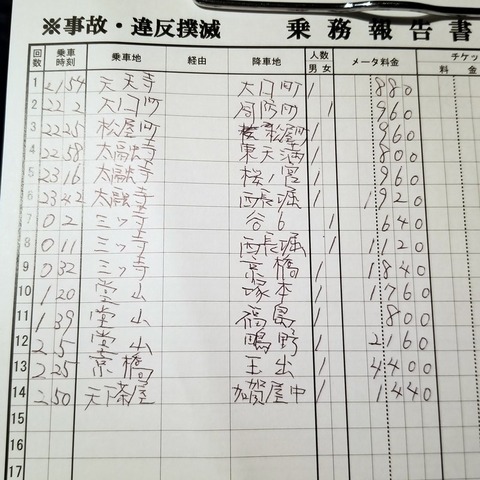 ※事故・違反撲滅 乗務報告書
回数 乗車時刻 乗車地 経由 降車地 人数 男 女 メータ料金 チケッ 料金
1 2154 天天寺 大口町 1 880
2 222 大口町 周防町 1 960
3 2225 松屋町 桜 1 960
4 2258 太融寺 東天満 1 800
5 2316 太融寺 桜ノ宮 1 960
6 2342 太融寺 西長堀 1 1920
7 0 2 三ッ寺 谷6 1 640
8 0 11 三ッ寺 西長堀 1 1120
9 0 32 三ッ寺 京橋 1 1840
10 1 20 堂山 塚本 1 1760
11 1 39 堂山 福島 1 800
12 2 5 堂山 鴫野 1 2160
13 2 25 京橋 玉出 1 4400
14 2 50 天下茶屋 加賀屋中 1 1440
15
16
17